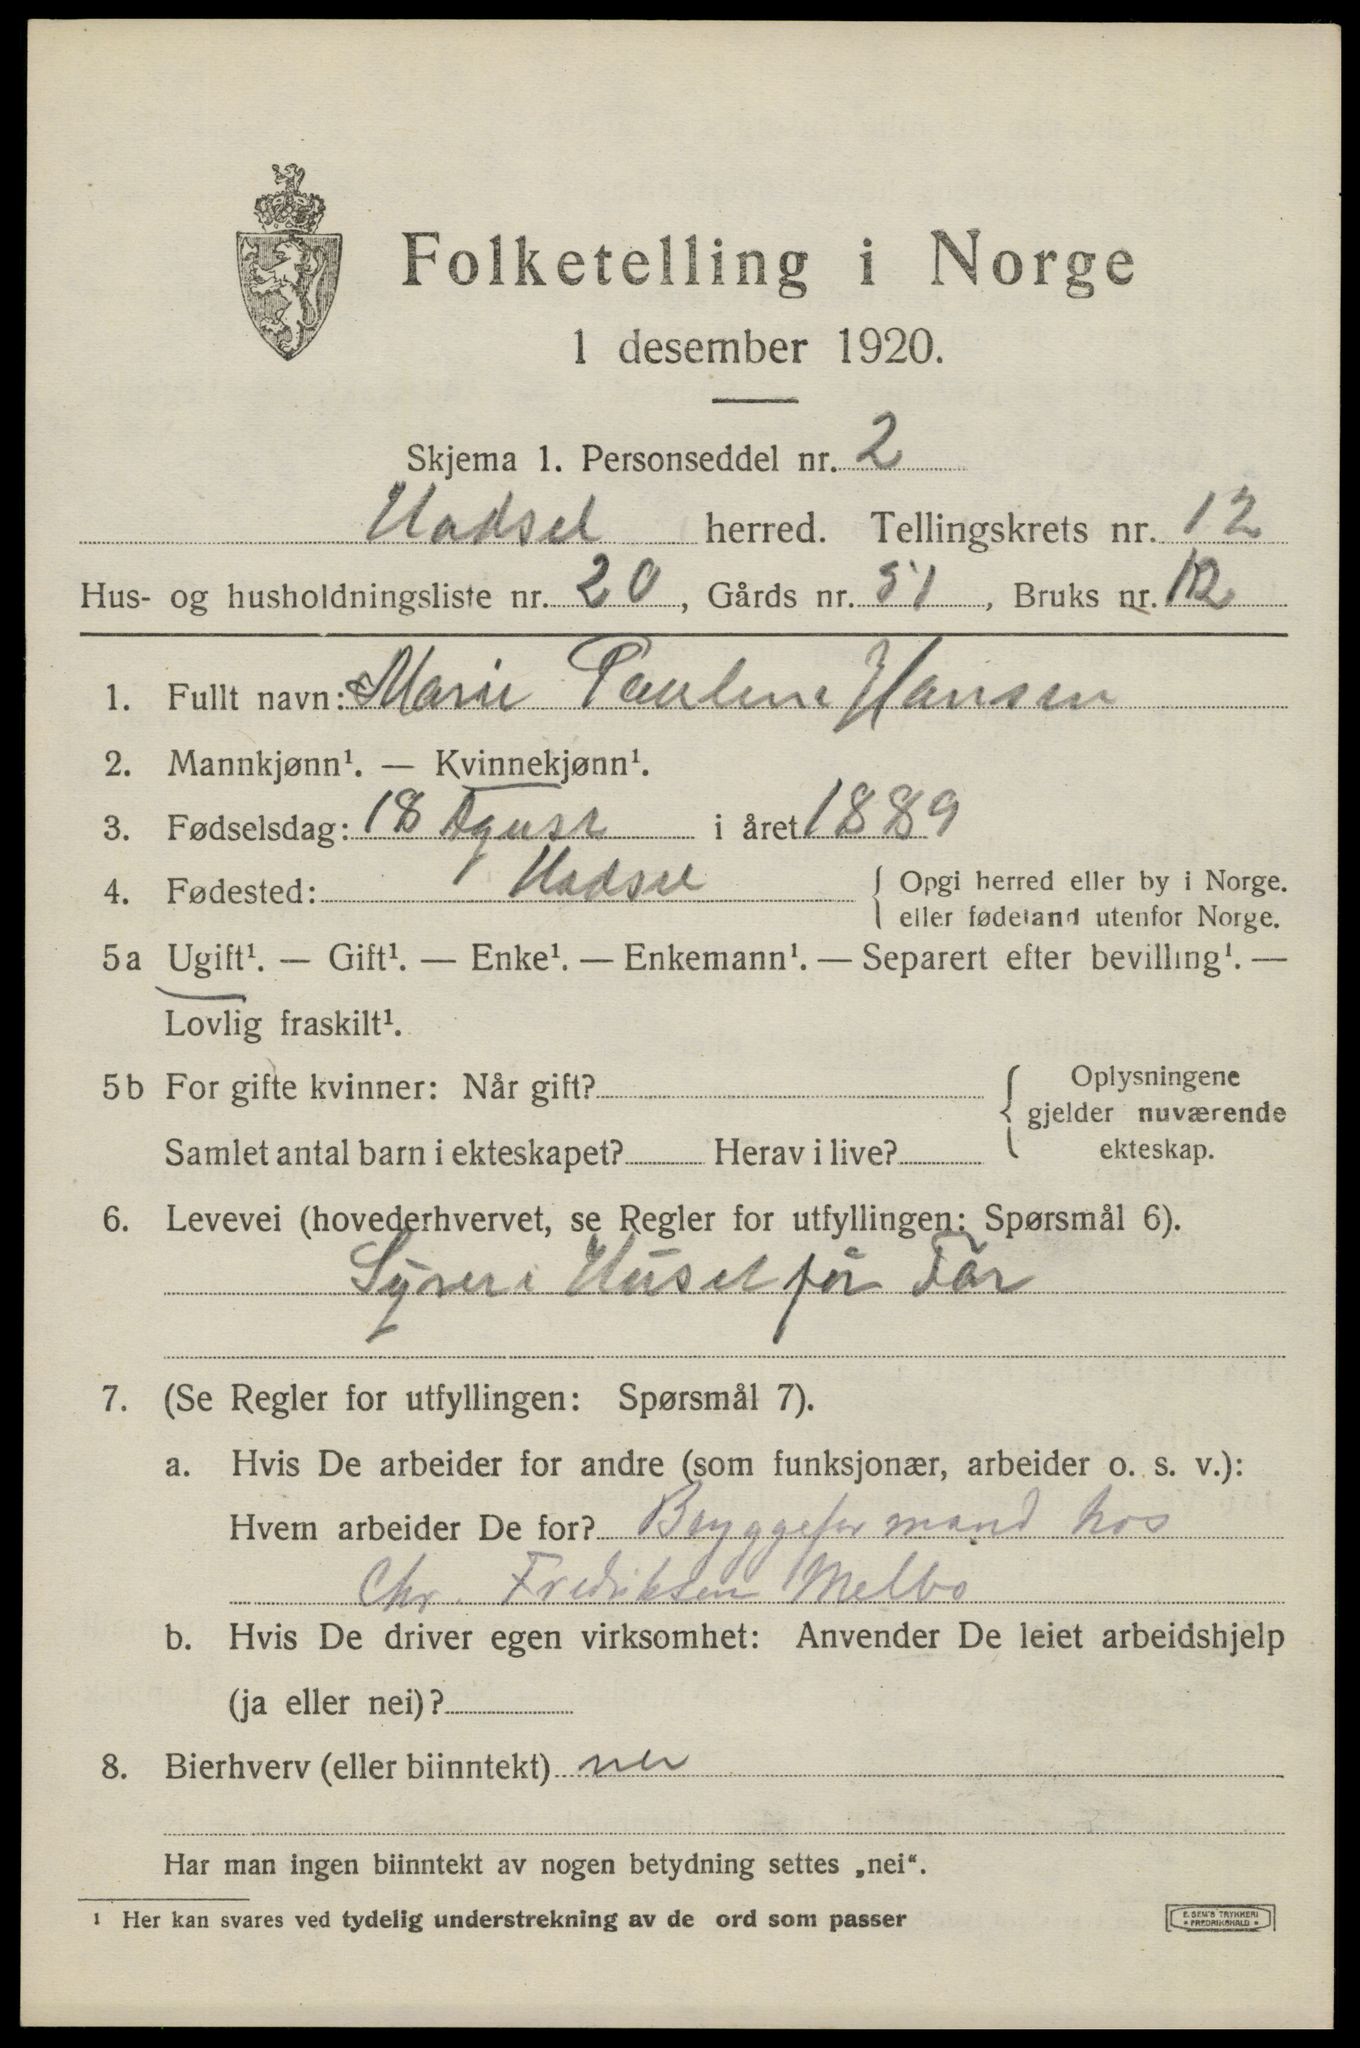 Folketelling i Norge
1 desember 1920.
Skjema 1. Personseddel nr. 2
Hadsel herred. Tellingskrets nr. 12
Hus- og husholdningsliste nr. 20, Gårds nr. 51, Bruks nr. 12
1. Fullt navn: Marie Pauline Hansen
2. Mannkjønn¹. — Kvinnekjønn¹.
3. Fødselsdag: 18 Agust i året 1889
4. Fødested: Hadsel { Opgi herred eller by i Norge.
eller fødeland utenfor Norge.
5a Ugift¹. — Gift¹. — Enke¹. — Enkemann¹. — Separert efter bevilling¹. —
Lovlig fraskilt¹.
5b For gifte kvinner: Når gift? { Oplysningene
gjelder nuværende
Samlet antal barn i ekteskapet? Herav i live? ekteskap.
6. Levevei (hovederhvervet, se Regler for utfyllingen: Spørsmål 6).
Syrer i Huset får Far
7. (Se Regler for utfyllingen: Spørsmål 7).
a. Hvis De arbeider for andre (som funksjonær, arbeider o. s. v.):
Hvem arbeider De for? Bryggeformand hos
Chr. Fredriksen Melbo
b. Hvis De driver egen virksomhet: Anvender De leiet arbeidshjelp
(ja eller nei)?
8. Bierhverv (eller biinntekt) nei
Har man ingen biinntekt av nogen betydning settes „nei“.
¹ Her kan svares ved tydelig understrekning av de ord som passer
E. SEM'S TRYKKERI
* FREDRIKSHALD *